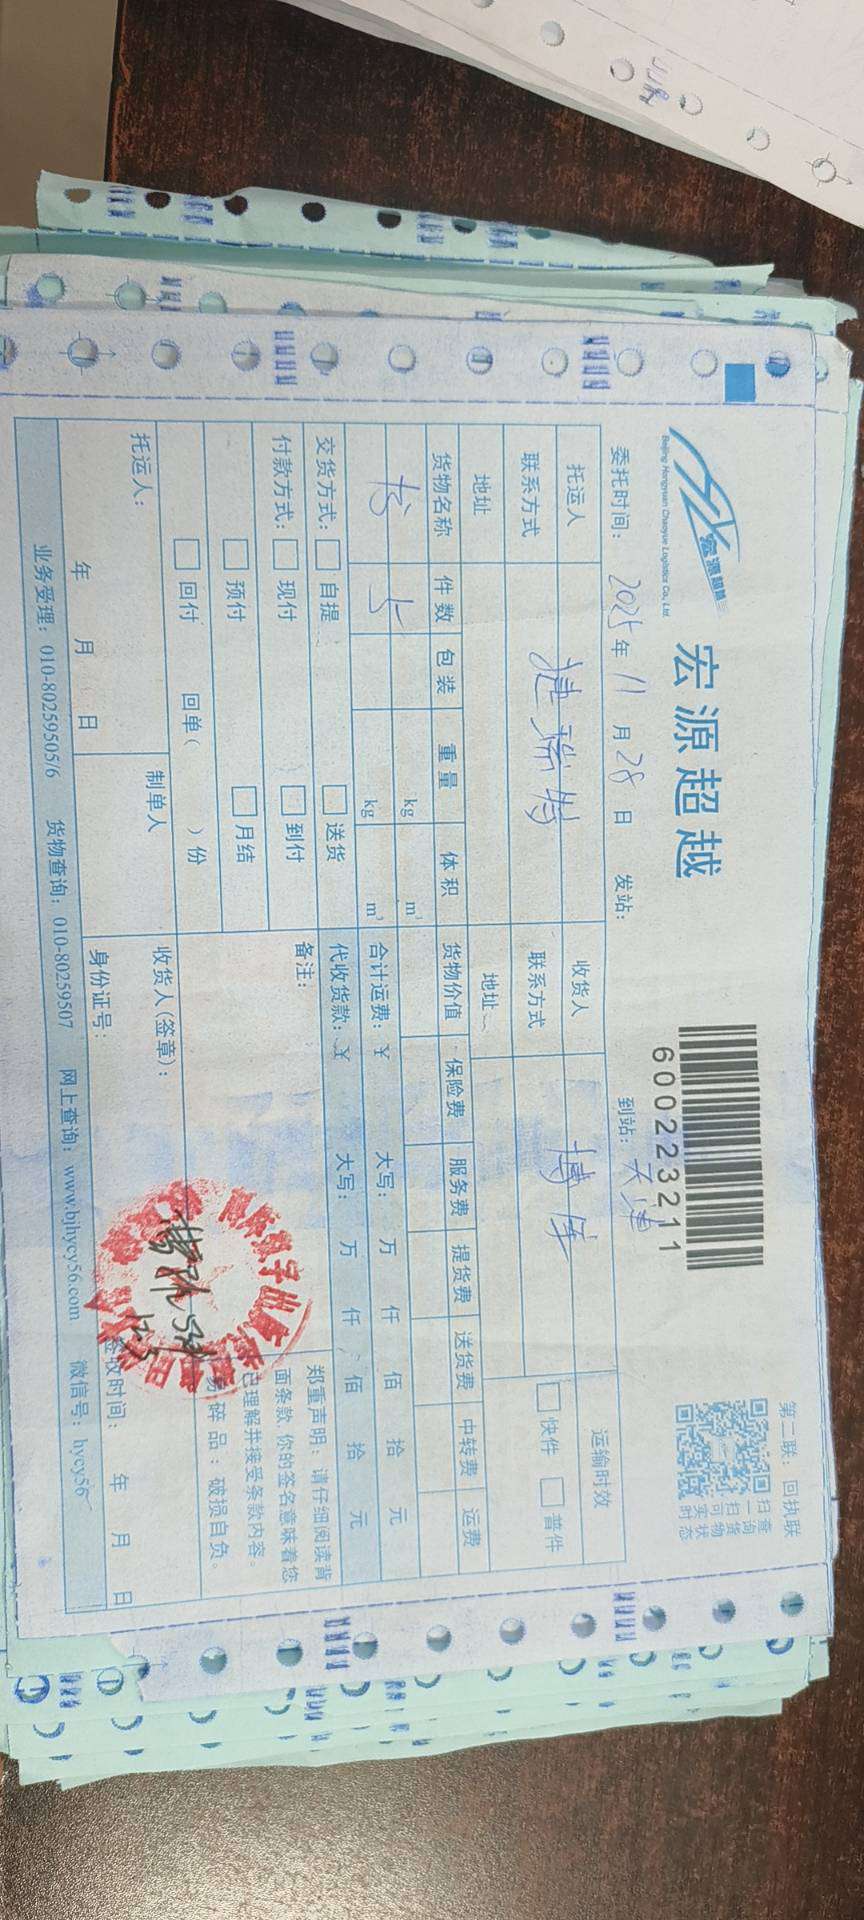 第二联：回执联
宏源超越
Beijing Hongyuan Chaoyue Logistics Co., Ltd.
宏源超越
6000223211
扫一扫可实时
查询货物状态
委托时间：2025年11月28日 发站： 到站：天津
托运人 捷瑞特 收货人 博睿 运输时效
联系方式 联系方式 快件 普件
地址 地址
货物名称 件数 包装 重量 体积 货物价值 保险费 服务费 提货费 送货费 中转费 运费
kg m³
5 kg m³ 合计运费：¥ 大写： 万 仟 佰 拾 元
交货方式： 自提 送货 代收货款：¥ 大写： 万 仟 佰 拾 元
付款方式： 现付 到付 备注：
预付 月结
回付 回单（ ）份
郑重声明：请仔细阅读背
面条款，你的签名意味着您
已理解并接受条款内容。
易碎品：破损自负。
托运人： 制单人 收货人(签章)：
年 月 日 身份证号： 签收时间： 年 月 日
业务受理：010-80259505/6 货物查询：010-80259507 网上查询：www.bjhycy56.com 微信号：hycy56